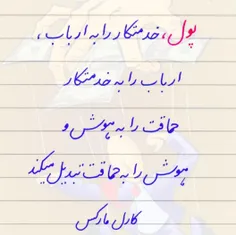 پول، خدمتکار را به ارباب،
ارباب را به خدمتکار
حماقت را به هوش و
هوش را به حماقت تبدیل میکند
کارل مارکس